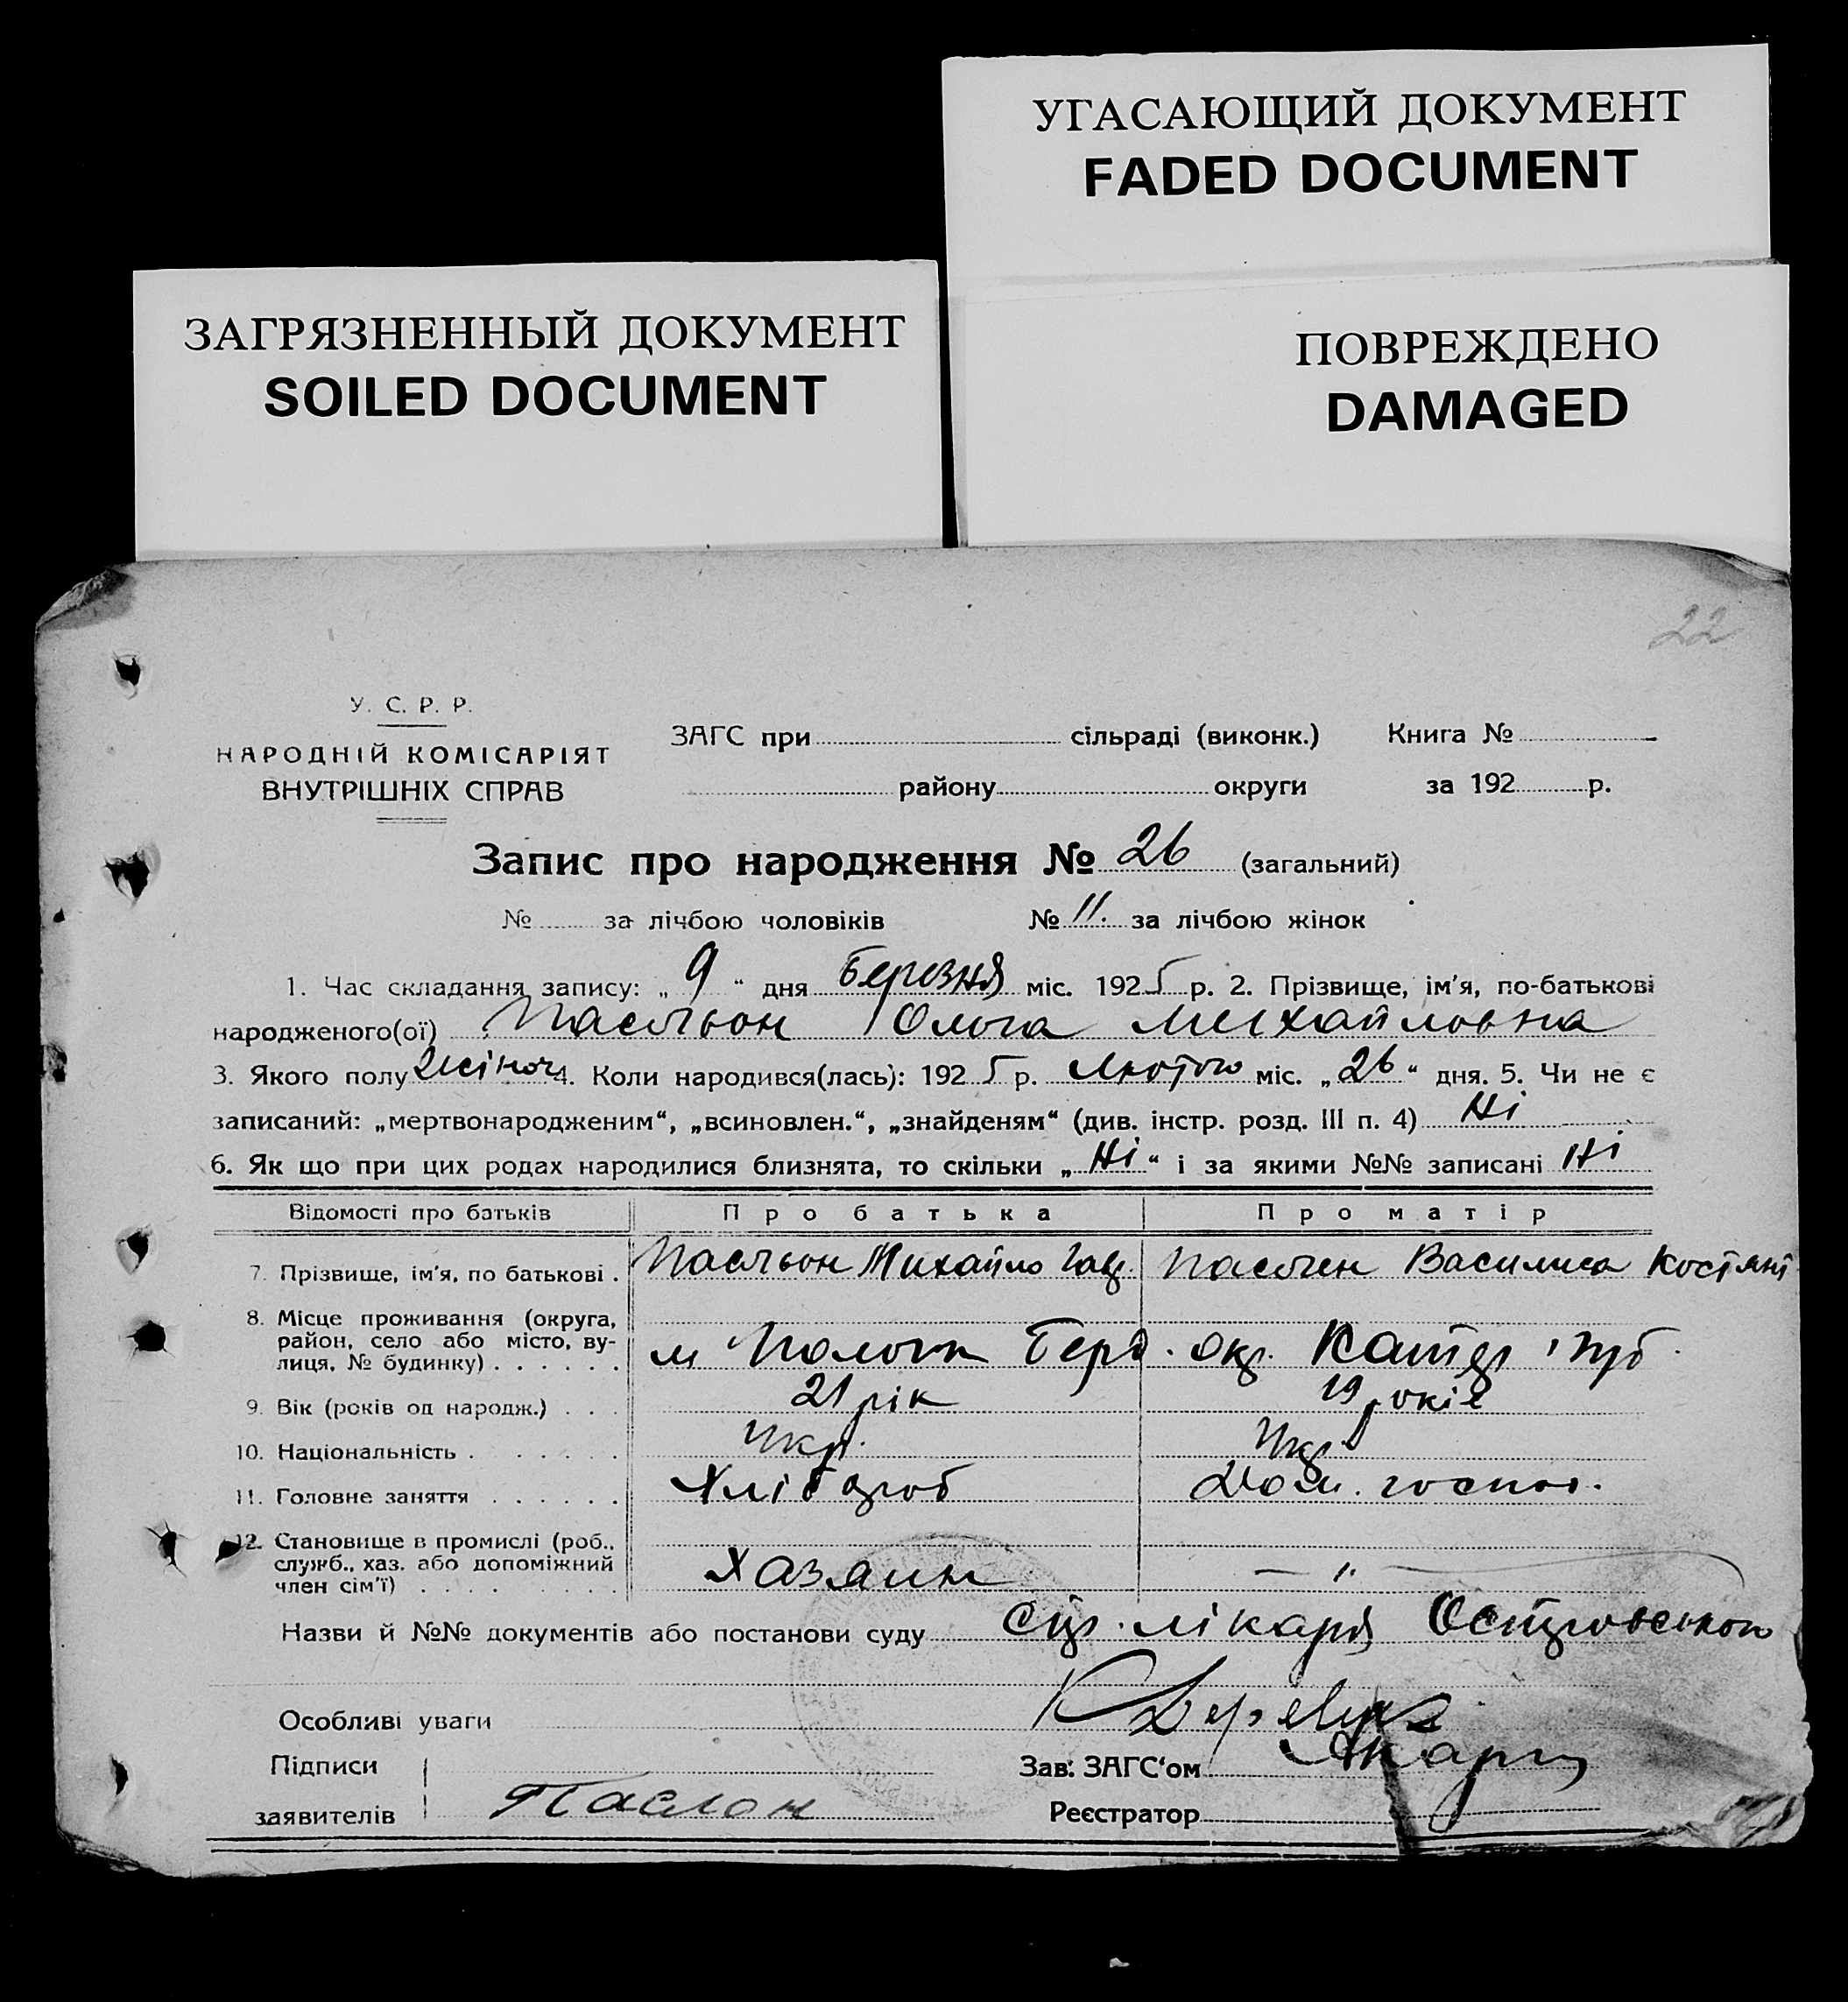 УГАСАЮЩИЙ ДОКУМЕНТ
FADED DOCUMENT
ЗАГРЯЗНЕННЫЙ ДОКУМЕНТ
SOILED DOCUMENT
ПОВРЕЖДЕНО
DAMAGED
22
У. С. Р. Р.
НАРОДНІЙ КОМІСАРІЯТ
ВНУТРІШНІХ СПРАВ
ЗАГС при сільраді (виконк.) Книга №
району округи за 192 р.
Запис про народження № 26 (загальний)
№ за лічбою чоловіків № 11. за лічбою жінок
1. Час складання запису: „ 9 “ дня березня міс. 1925 р. 2. Прізвище, ім'я, по-батькові
народженого(ої) Ольга Михайловна
3. Якого полу жіноч 4. Коли народився(лась): 1925 р. Лютого міс. „26“ дня. 5. Чи не є
записаний: „мертвонародженим“, „всиновлен.“, „знайденям“ (див. інстр. розд. III п. 4) Ні
6. Як що при цих родах народилися близнята, то скільки „Ні“ і за якими №№ записані Ні
Відомості про батьків Про батька Про матір
7. Прізвище, ім'я, по батькові . Михайло Василиса Костянт
8. Місце проживання (округа,
район, село або місто, ву-
лиця, № будинку) . . . . . . м Пологи Берд. окр. Катер. губ.
9. Вік (років од народж.) . . . 21 рік 19 років
10. Національність . . . . . . Укр. Укр.
11. Головне заняття . . . . . . Хлібороб Дом. господ.
12. Становище в промислі (роб.,
служб., хаз. або допоміжний
член сім'ї) . . . . . . . Хазяин — " —
Назви й №№ документів або постанови суду лікаря Островського
Особливі уваги
Підписи
заявителів Паслон
Зав. ЗАГС'ом
Реєстратор